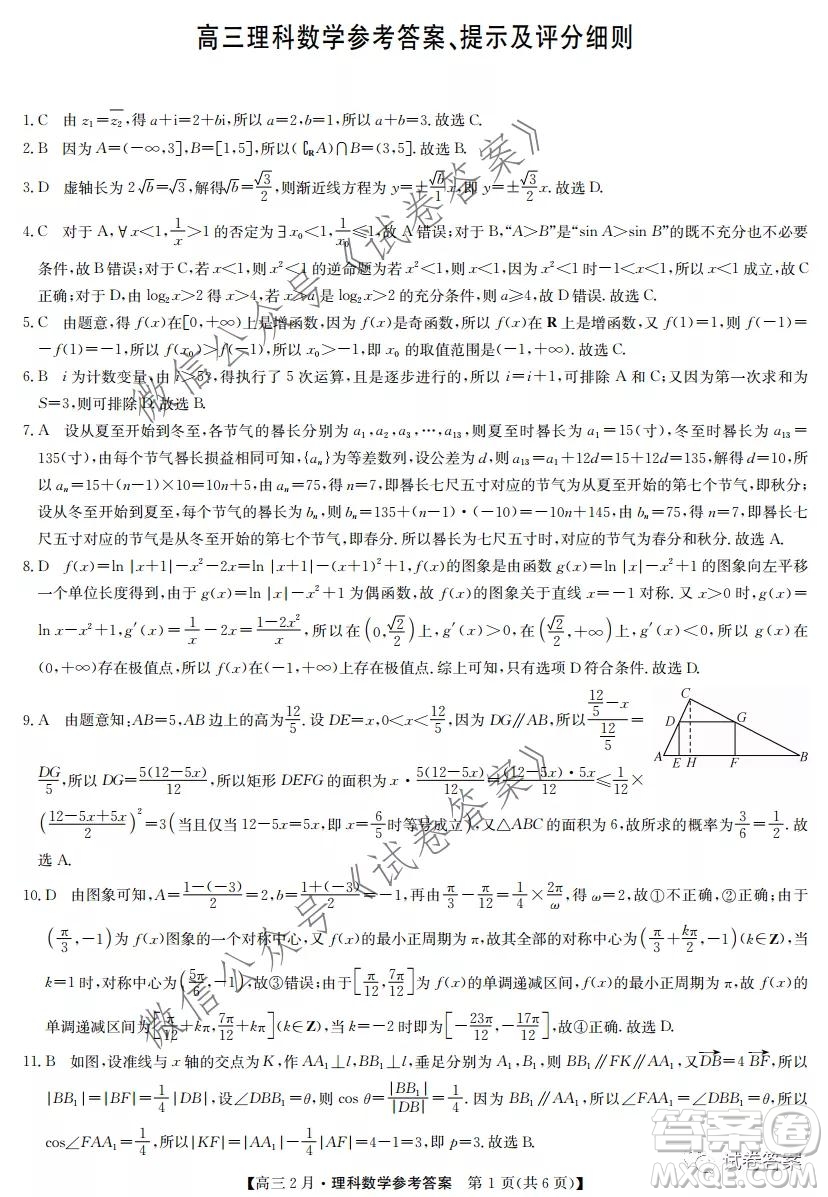 高三理科数学参考答案、提示及评分细则
1.C 由 z₁=z̅₂,得 a+i=2+bi,所以 a=2,b=1,所以 a+b=3.故选 C.
2.B 因为 A=(-∞,3],B=[1,5],所以(∁RA)∩B=(3,5].故选 B.
3.D 虚轴长为 2√b=√3,解得√b=√3/2,则渐近线方程为 y=±√b/1 x,即 y=±√3/2 x.故选 D.
4.C 对于 A,∀x<1,1/x>1 的否定为∃x₀<1,1/x₀≤1,故 A 错误;对于 B,“A>B”是“sin A>sin B”的既不充分也不必要
条件,故 B 错误;对于 C,若 x<1,则 x²<1 的逆命题为若 x²<1,则 x<1,因为 x²<1 时-1<x<1,所以 x<1 成立,故 C
正确;对于 D,由 log₂x>2 得 x>4,若 x>a 是 log₂x>2 的充分条件,则 a≥4,故 D 错误.故选 C.
5.C 由题意,得 f(x)在[0,+∞)上是增函数,因为 f(x)是奇函数,所以 f(x)在 R 上是增函数,又 f(1)=1,则 f(-1)=
-f(1)=-1,所以 f(x₀)>f(-1),所以 x₀>-1,即 x₀ 的取值范围是(-1,+∞).故选 C.
6.B i 为计数变量,由 i>5?,得执行了 5 次运算,且是逐步进行的,所以 i=i+1,可排除 A 和 C;又因为第一次求和为
S=3,则可排除 D.故选 B.
7.A 设从夏至开始到冬至,各节气的晷长分别为 a₁,a₂,a₃,…,a₁₃,则夏至时晷长为 a₁=15(寸),冬至时晷长为 a₁₃=
135(寸),由每个节气晷长损益相同可知,{aₙ}为等差数列,设公差为 d,则 a₁₃=a₁+12d=15+12d=135,解得 d=10,所
以 aₙ=15+(n-1)×10=10n+5,由 aₙ=75,得 n=7,即晷长七尺五寸对应的节气为从夏至开始的第七个节气,即秋分;
设从冬至开始到夏至,每个节气的晷长为 bₙ,则 bₙ=135+(n-1)·(-10)=-10n+145,由 bₙ=75,得 n=7,即晷长七
尺五寸对应的节气是从冬至开始的第七个节气,即春分.所以晷长为七尺五寸时,对应的节气为春分和秋分.故选 A.
8.D f(x)=ln |x+1|-x²-2x=ln |x+1|-(x+1)²+1,f(x)的图象是由函数 g(x)=ln |x|-x²+1 的图象向左平移
一个单位长度得到,由于 g(x)=ln |x|-x²+1 为偶函数,故 f(x)的图象关于直线 x=-1 对称.又 x>0 时,g(x)=
ln x-x²+1,g′(x)=1/x-2x=(1-2x²)/x,所以在(0,√2/2)上,g′(x)>0,在(√2/2,+∞)上,g′(x)<0,所以 g(x)在
(0,+∞)存在极值点,所以 f(x)在(-1,+∞)上存在极值点.综上可知,只有选项 D 符合条件.故选 D.
9.A 由题意知:AB=5,AB 边上的高为12/5.设 DE=x,0<x<12/5,因为 DG∥AB,所以(12/5-x)/(12/5)=
DG/5,所以 DG=5(12-5x)/12,所以矩形 DEFG 的面积为 x·5(12-5x)/12=(12-5x)·5x/12≤1/12×
((12-5x+5x)/2)²=3(当且仅当 12-5x=5x,即 x=6/5时等号成立),又△ABC 的面积为 6,故所求的概率为3/6=1/2.故
选 A.
C
D
G
A
E
H
F
B
10.D 由图象可知,A=(1-(-3))/2=2,b=(1+(-3))/2=-1,再由π/3-π/12=1/4×2π/ω,得 ω=2,故①不正确,②正确;由于
(π/3,-1)为 f(x)图象的一个对称中心,又 f(x)的最小正周期为 π,故其全部的对称中心为(π/3+kπ/2,-1)(k∈Z),当
k=1 时,对称中心为(5π/6,-1),故③错误;由于[π/12,7π/12]为 f(x)的单调递减区间,f(x)的最小正周期为 π,故 f(x)的
单调递减区间为[π/12+kπ,7π/12+kπ](k∈Z),当 k=-2 时即为[-23π/12,-17π/12],故④正确.故选 D.
11.B 如图,设准线与 x 轴的交点为 K,作 AA₁⊥l,BB₁⊥l,垂足分别为 A₁,B₁,则 BB₁∥FK∥AA₁,又DB→=4 BF→,所以
|BB₁|=|BF|=1/4|DB|,设∠DBB₁=θ,则 cos θ=|BB₁|/|DB|=1/4.因为 BB₁∥AA₁,所以∠FAA₁=∠DBB₁=θ,所以
cos∠FAA₁=1/4,所以|KF|=|AA₁|-1/4|AF|=4-1=3,即 p=3.故选 B.
【高三 2 月·理科数学参考答案 第 1 页(共 6 页)】
微信公众号《试卷答案》
微信公众号《试卷答案》
答案圈
试卷答案
MXQE.COM